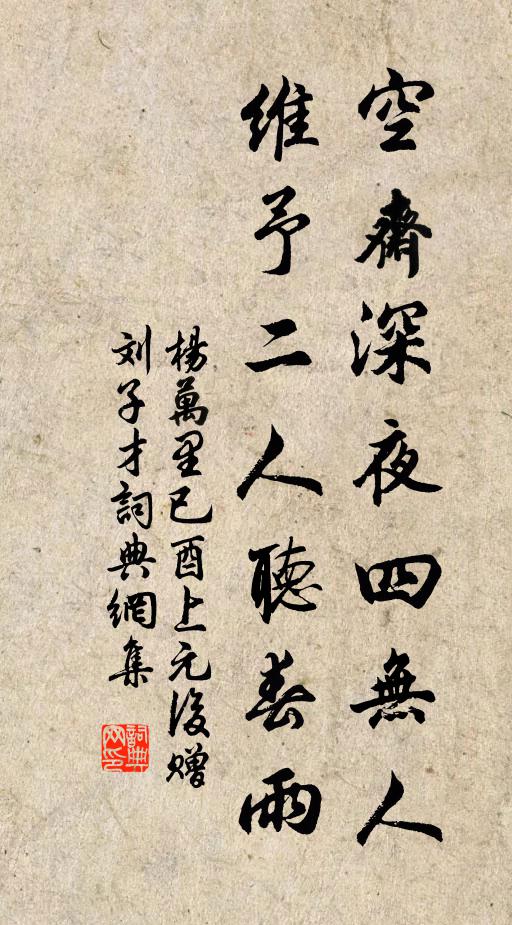 空齋深夜四無人
維予二人聽春雨
楊萬里已酉上元後贈
刘子才詞典網集
詞典网印